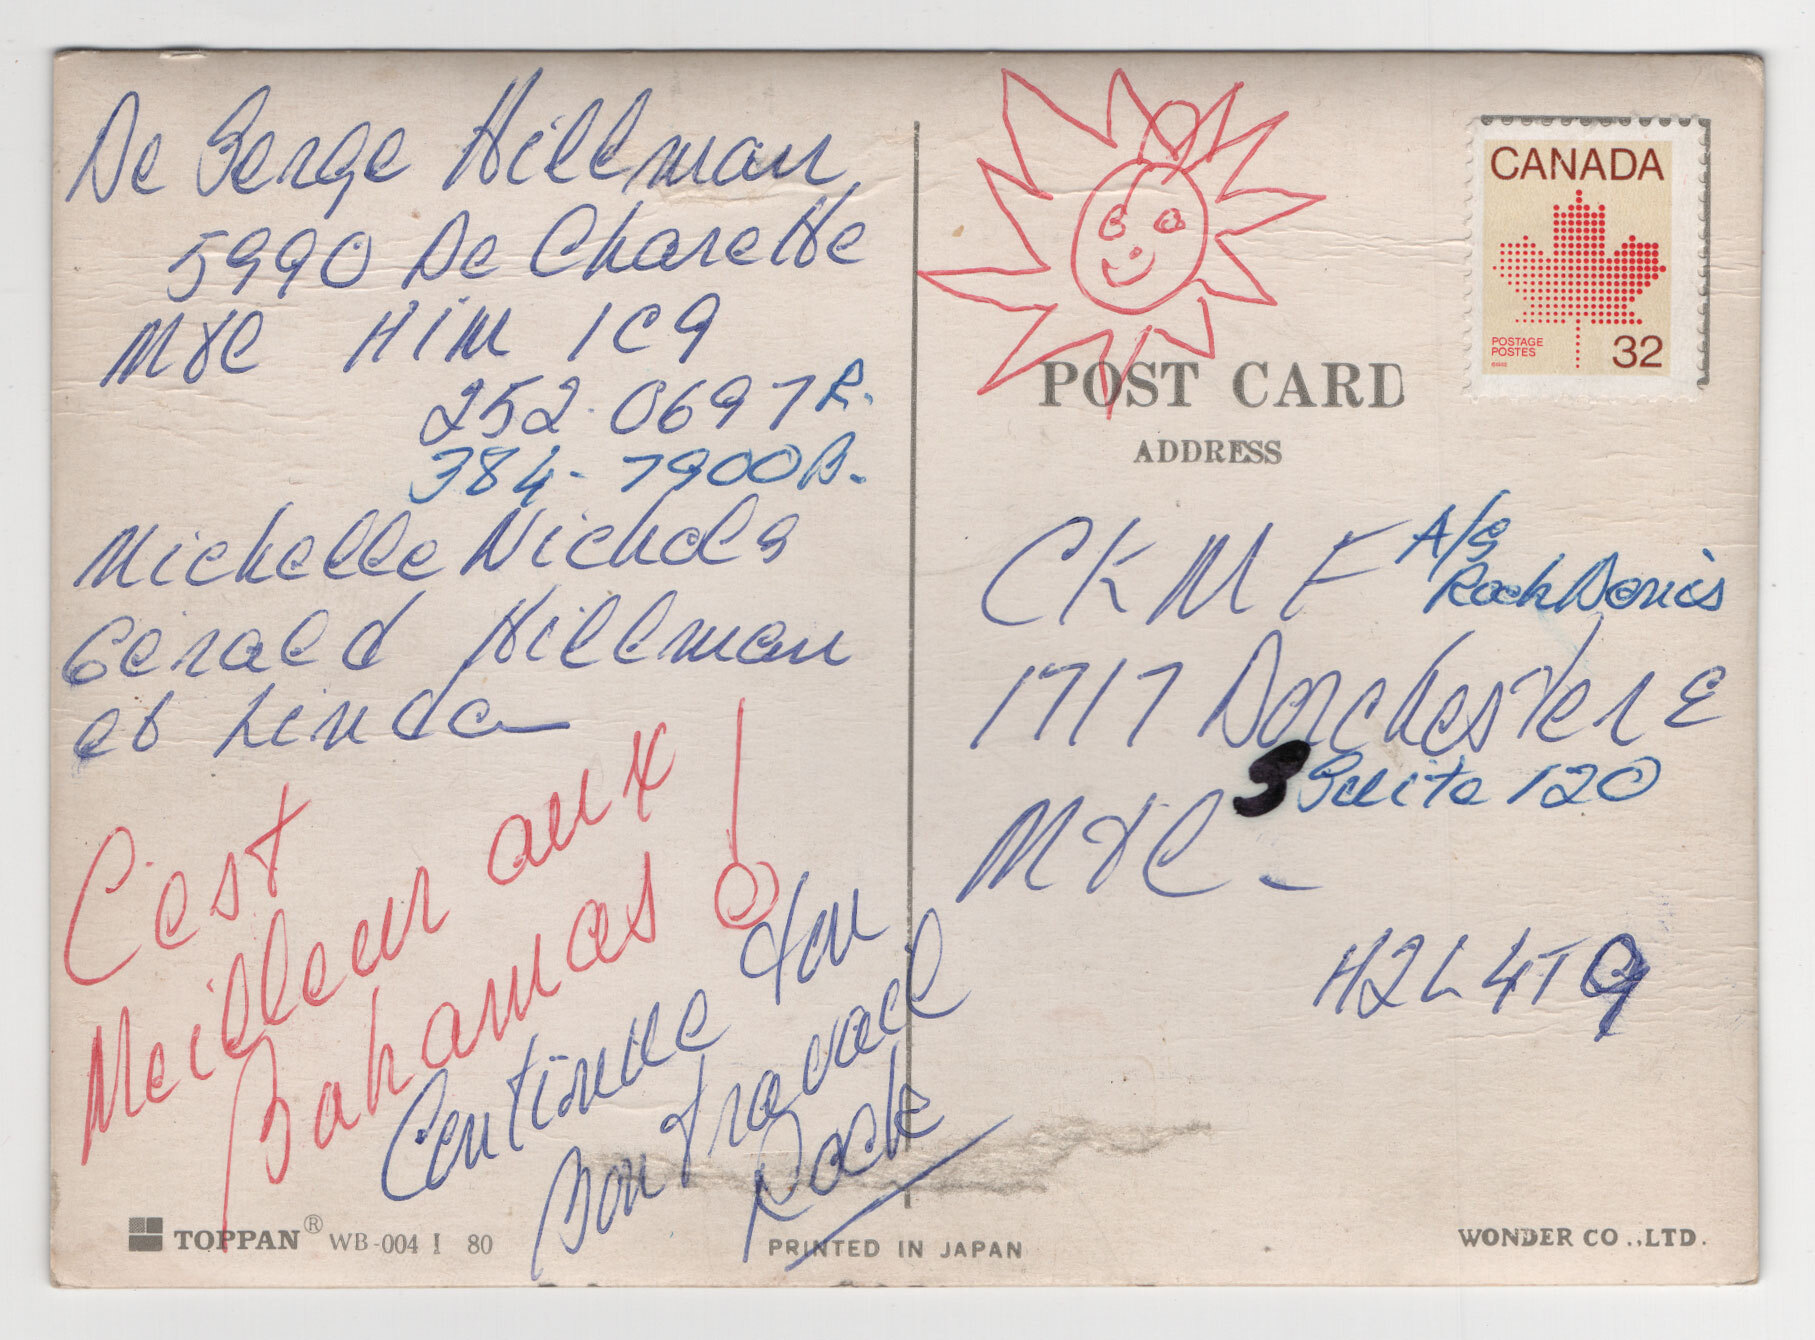 De Serge Hillman
5990 De Charette
Mtl H1M 1C9
252-0697 R.
384-7900 B.
Michelle Nichols
Gérald Hillman
et Linda
C'est
Meilleur aux
Bahamas !
Continue ton
Bon travail
Rock
CANADA
POSTAGE
POSTES
32
POST CARD
ADDRESS
CKMF A/S
Rock Denis
1717 Dorchester E
Suite 120
Mtl -
H2L 4T9
TOPPAN® WB-004 I 80
PRINTED IN JAPAN
WONDER CO.,LTD.